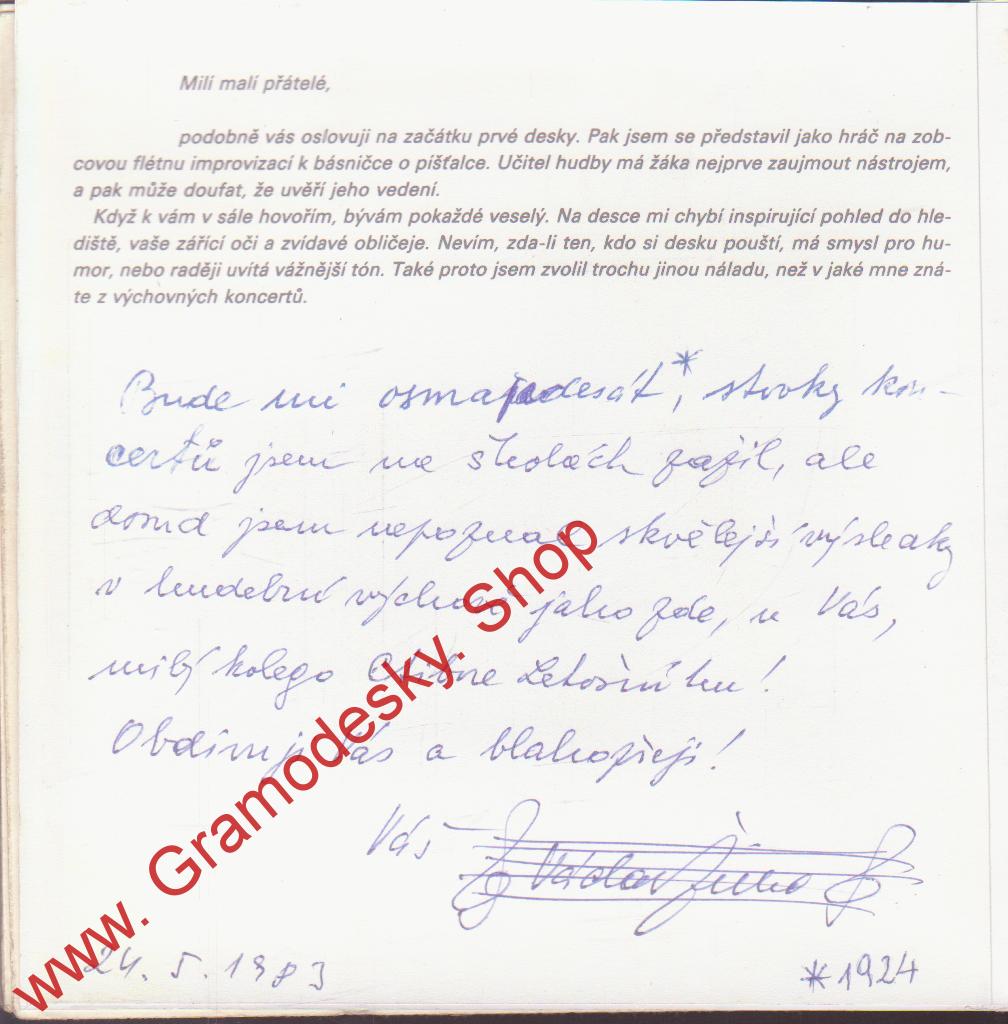 Milí malí přátelé,
podobně vás oslovuji na začátku prvé desky. Pak jsem se představil jako hráč na zob-
covou flétnu improvizací k básničce o píšťalce. Učitel hudby má žáka nejprve zaujmout nástrojem,
a pak může doufat, že uvěří jeho vedení.
Když k vám v sále hovořím, bývám pokaždé veselý. Na desce mi chybí inspirující pohled do hle-
diště, vaše zářící oči a zvídavé obličeje. Nevím, zda-li ten, kdo si desku pouští, má smysl pro hu-
mor, nebo raději uvítá vážnější tón. Také proto jsem zvolil trochu jinou náladu, než v jaké mne zná-
te z výchovných koncertů.
Bude mi osmapadesát*, stovky kon-
certů jsem na školách zažil, ale
dosud jsem nepoznal skvělejší výsledky
v hudební výchově jako zde, u Vás,
milý kolego Ctibore Letošníku!
Obdivuji Vás a blahopřeji!
Váš
Václav Žilka
24. 5. 1983
*1924
www. Gramodesky. Shop